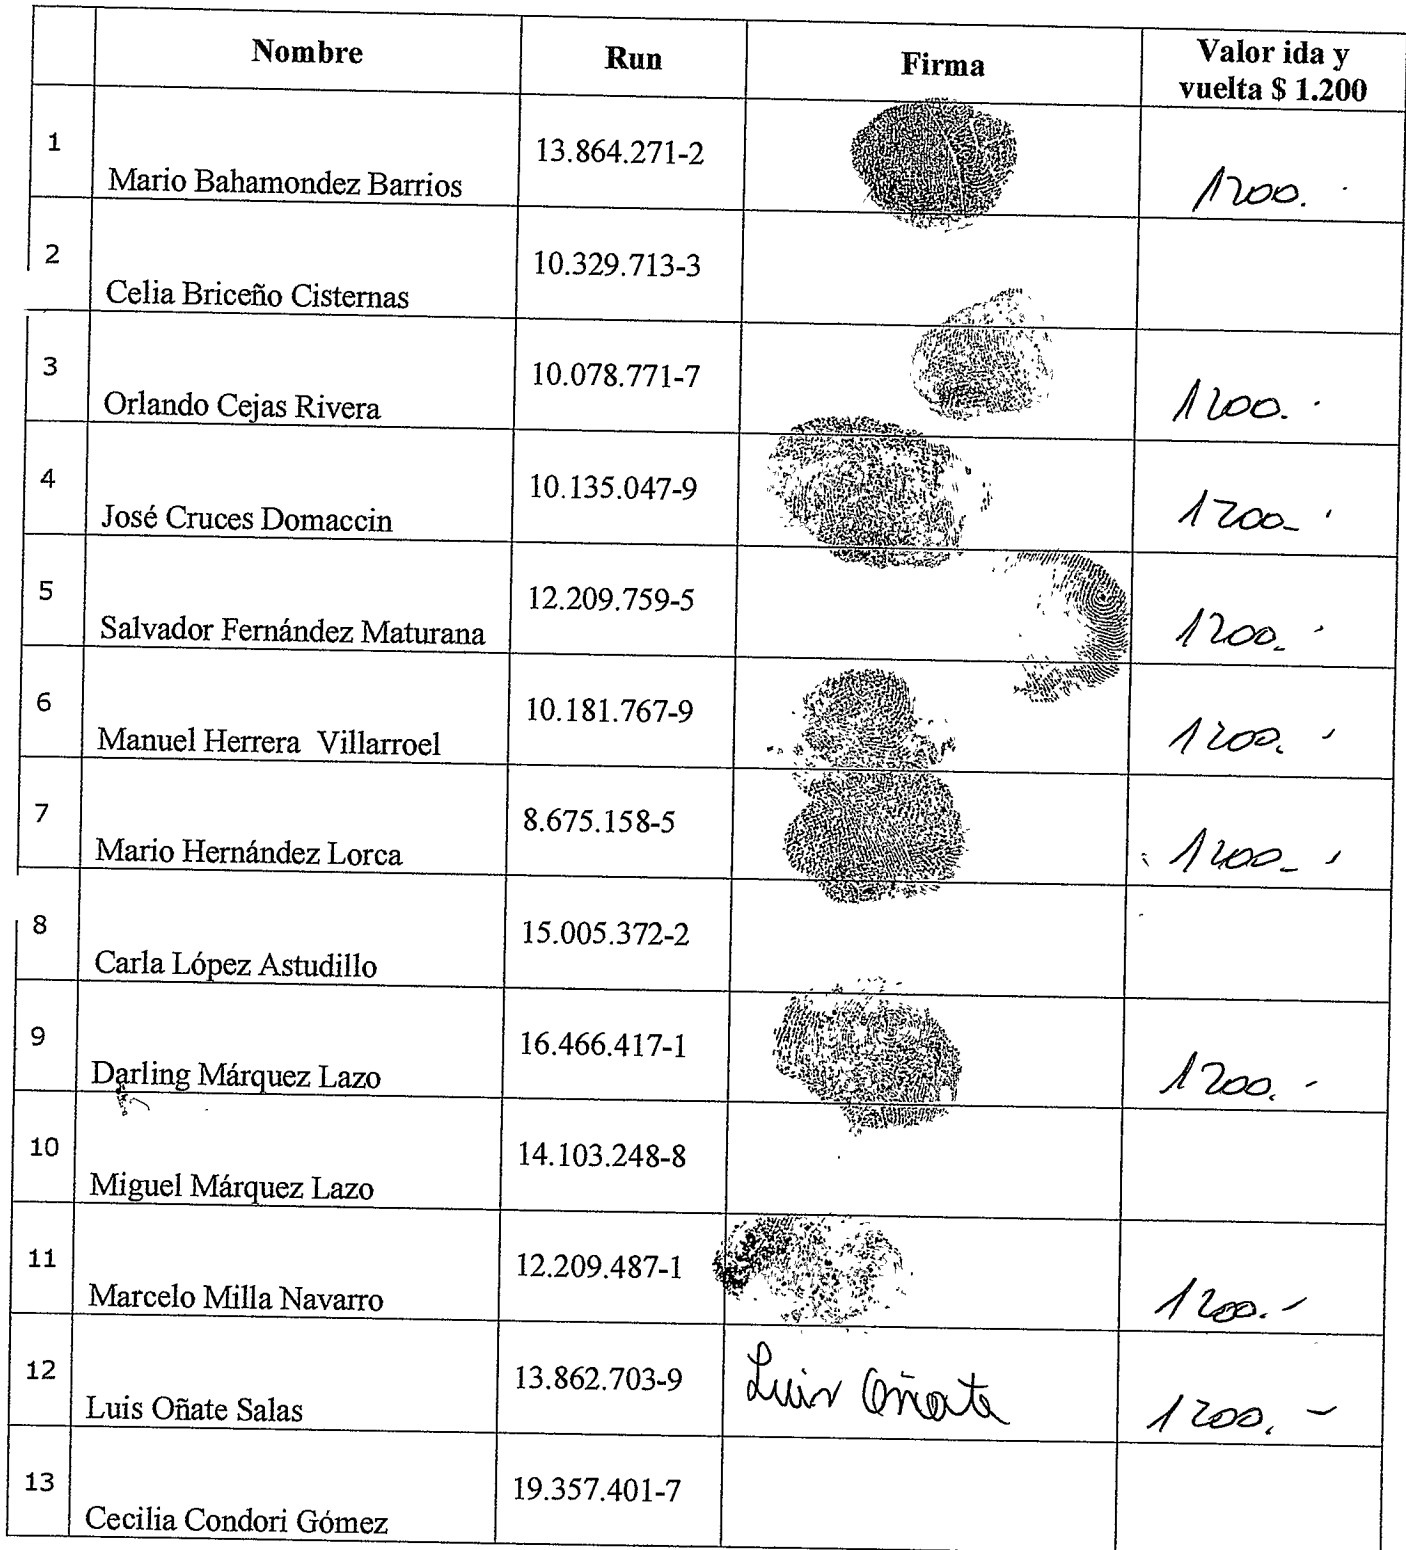 Nombre Run Firma Valor ida y
vuelta $ 1.200
1 Mario Bahamondez Barrios 13.864.271-2 1200.
2 Celia Briceño Cisternas 10.329.713-3
3 Orlando Cejas Rivera 10.078.771-7 1200.
4 José Cruces Domaccin 10.135.047-9 1200-
5 Salvador Fernández Maturana 12.209.759-5 1200.-
6 Manuel Herrera Villarroel 10.181.767-9 1200.-
7 Mario Hernández Lorca 8.675.158-5 1200-
8 Carla López Astudillo 15.005.372-2
9 Darling Márquez Lazo 16.466.417-1 1200.-
10 Miguel Márquez Lazo 14.103.248-8
11 Marcelo Milla Navarro 12.209.487-1 1200.-
12 Luis Oñate Salas 13.862.703-9 Luis Oñate 1200.-
13 Cecilia Condori Gómez 19.357.401-7